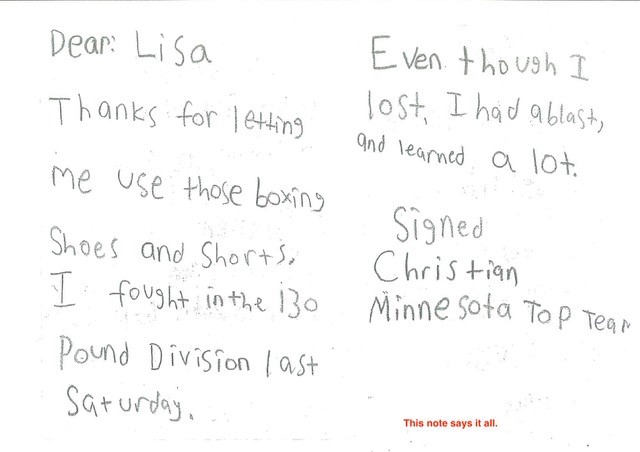 Dear: Lisa
Thanks for letting
me use those boxing
Shoes and Shorts,
I fought in the 130
Pound Division last
Saturday.
Even though I
lost, I had a blast,
and learned a lot.
Signed
Christian
Minnesota Top Team
This note says it all.